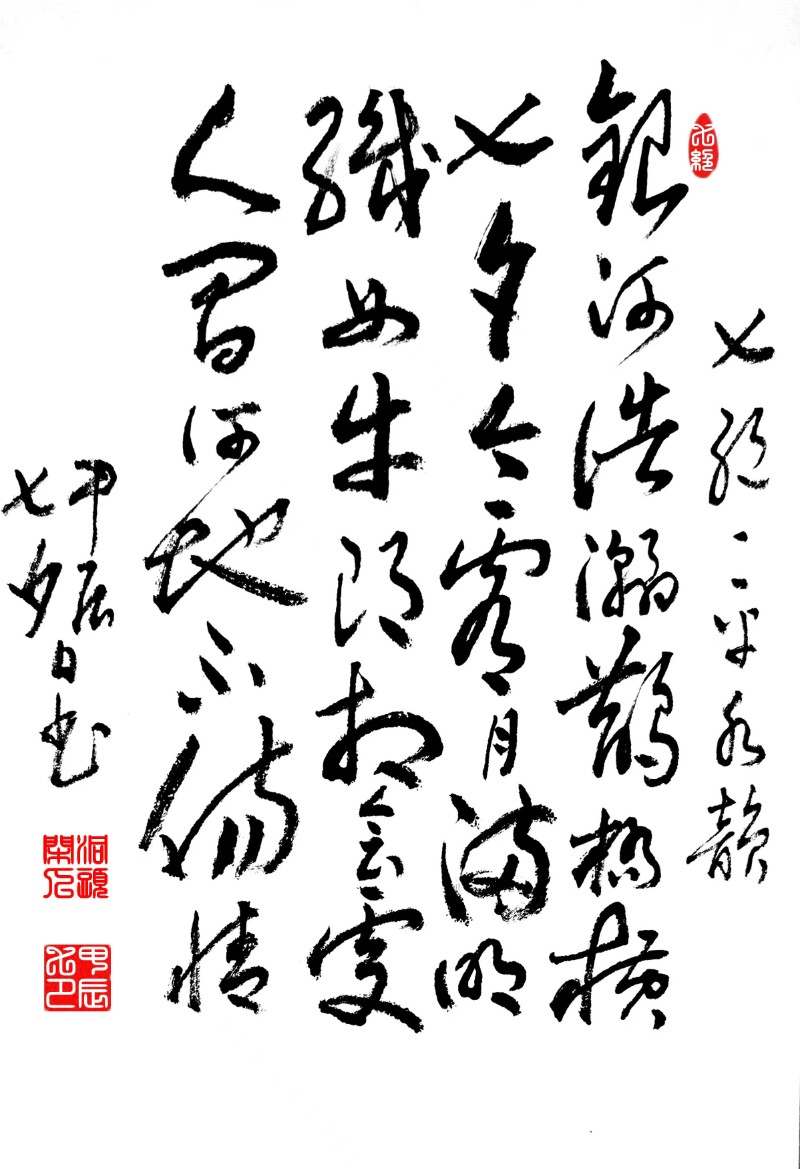 七絕
平水韻
銀河浩瀚鵲橋橫
七夕今霄月滿明
織女牛郎相會處
人間何地不傷情
甲辰
七夕日书
甲辰